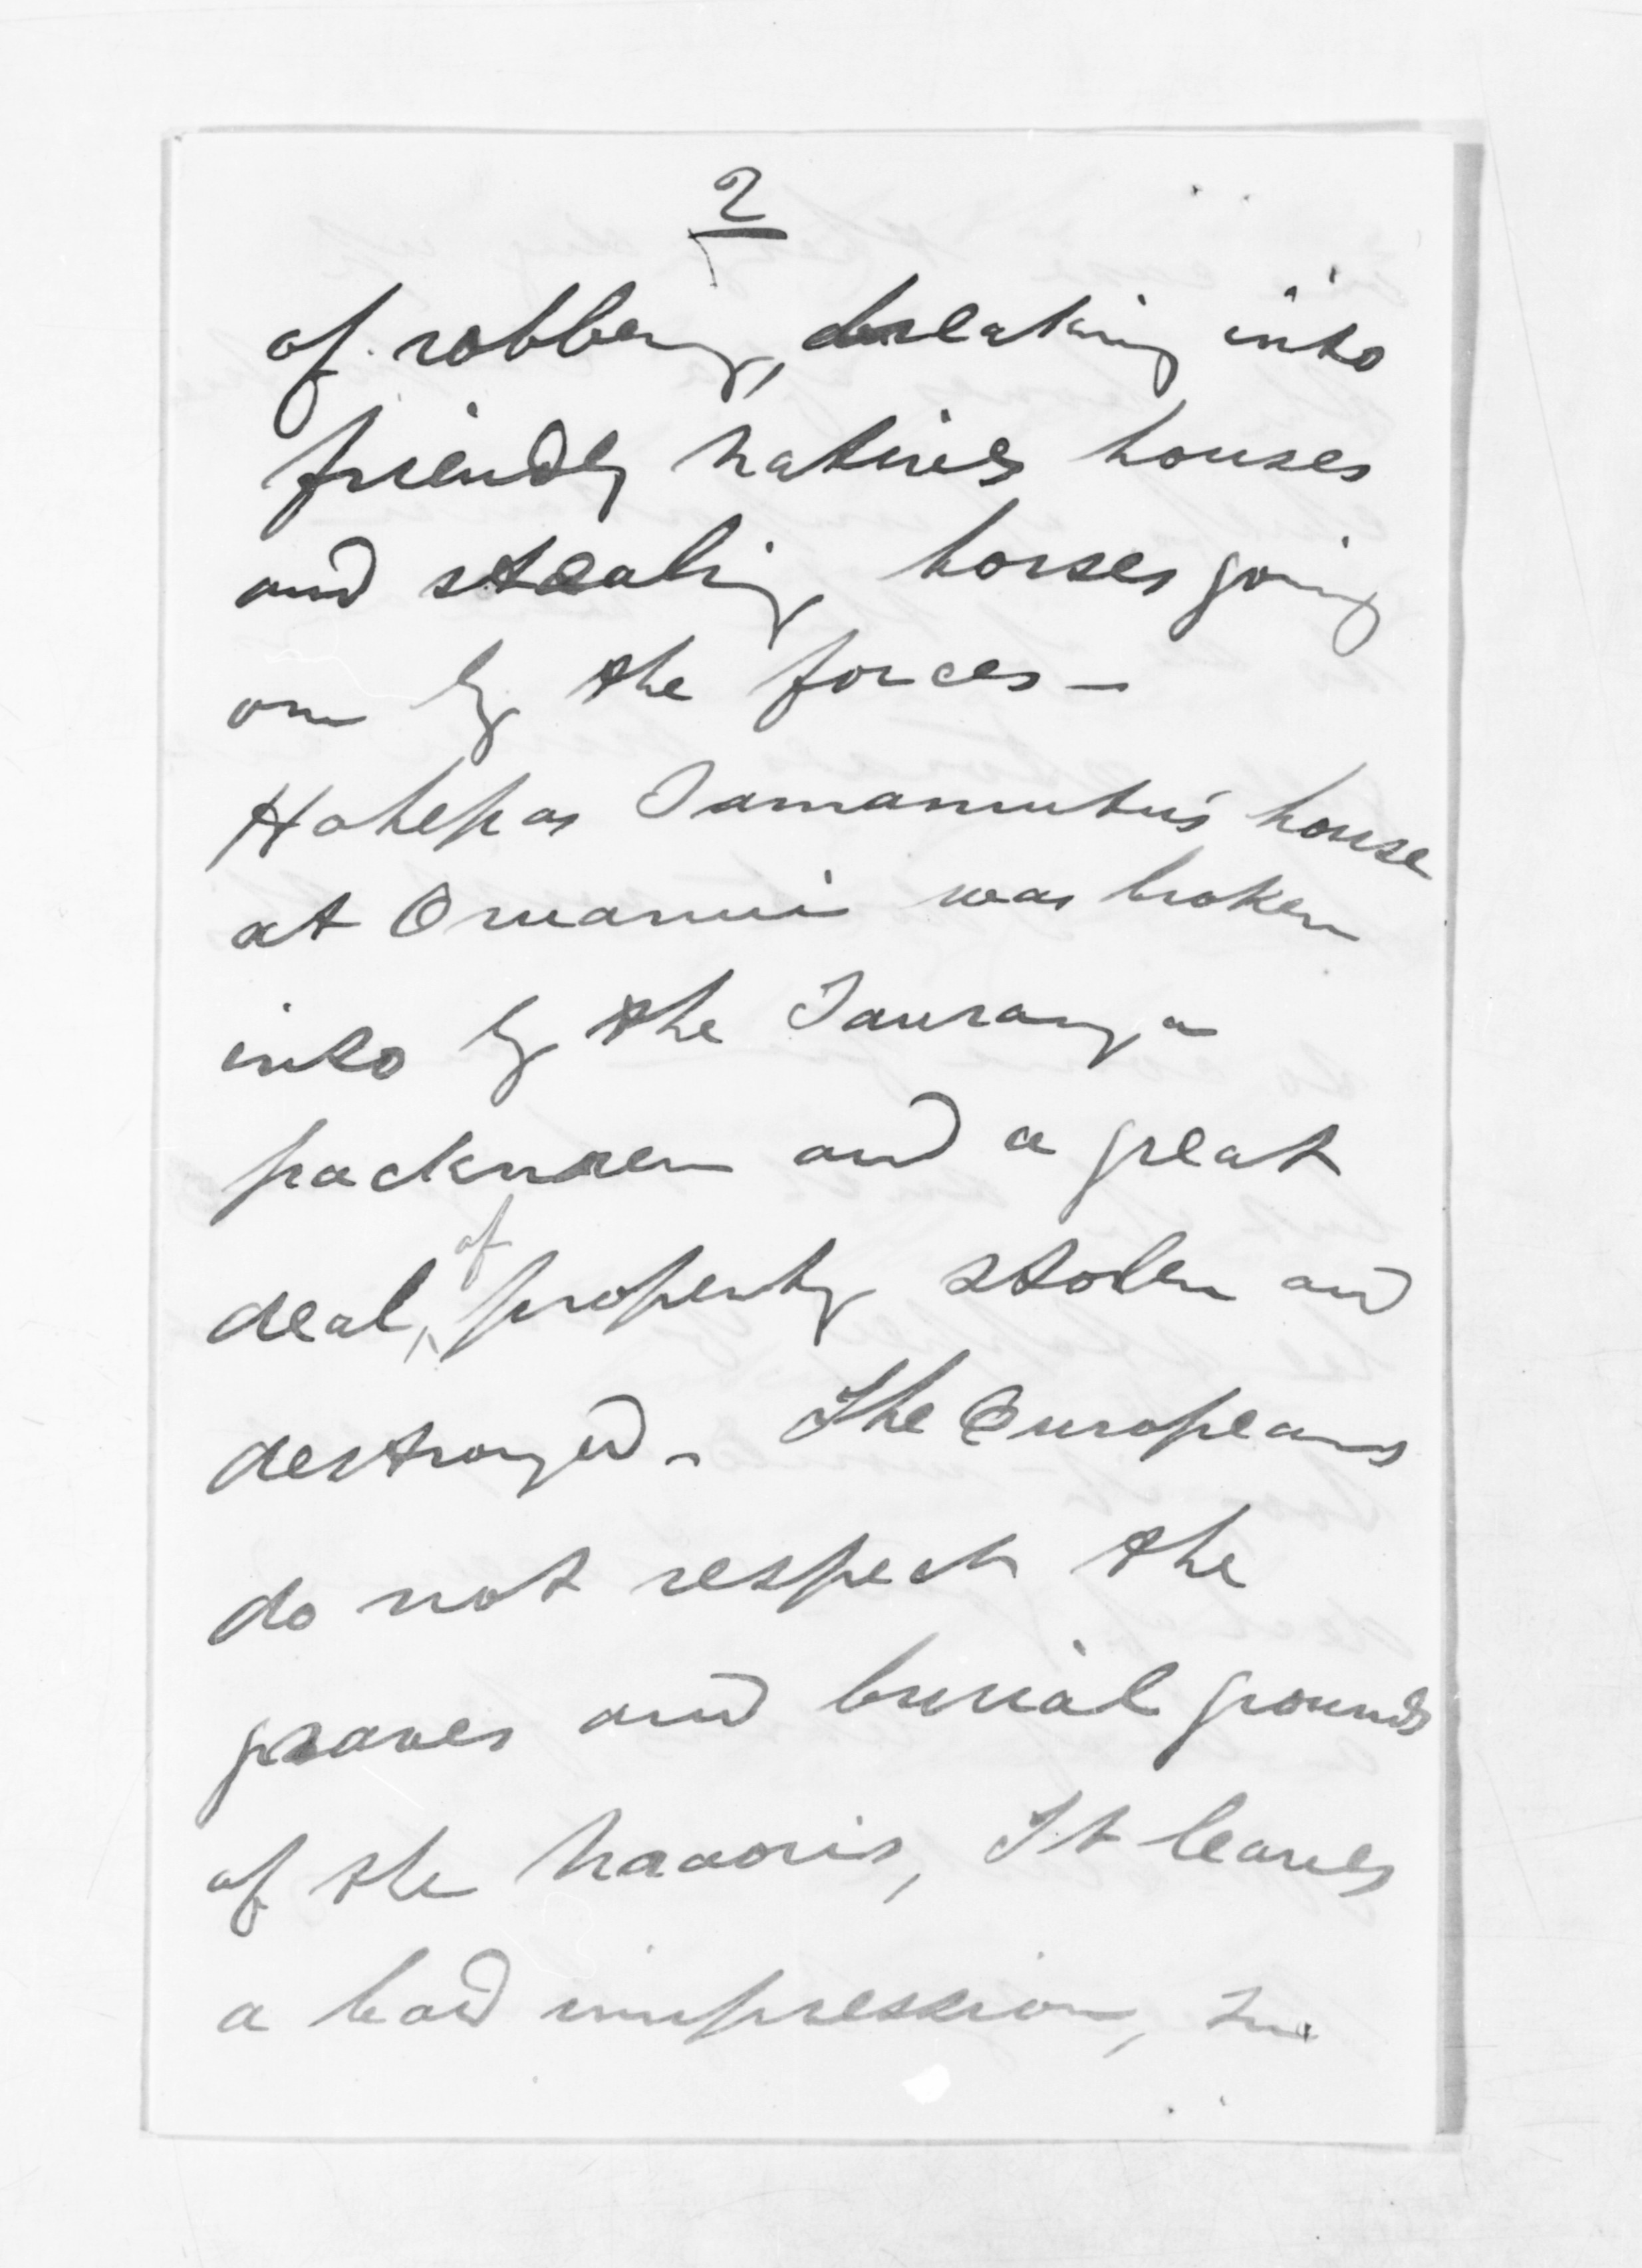 2
of robbery, breaking into
friendly natives houses
and stealing horses going
on by the forces -
Hohepas Tamamutu's house
at Oruanui was broken
into by the Tauranga
packmen and a great
deal of property stolen and
destroyed - The Europeans
do not respect the
graves and burial grounds
of the maoris, It leaves
a bad impression, In